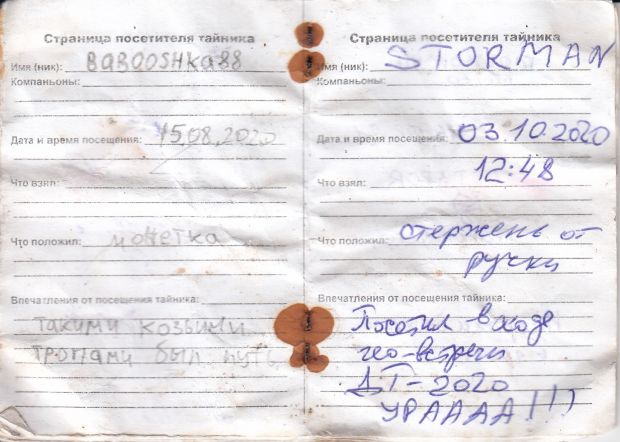 Страница посетителя тайника
Имя (ник): BABOOSHKA88
Компаньоны:
Дата и время посещения: 15.08.2020
Что взял:
Что положил: монетка
Впечатления от посещения тайника:
такими козьими
тропами был путь
Страница посетителя тайника
Имя (ник): STORMAN
Компаньоны:
Дата и время посещения: 03.10.2020
12:48
Что взял:
Что положил: стержень от
ручки
Впечатления от посещения тайника:
Посетил в ходе
гео-встречи
ДТ-2020
УРАААА!!!